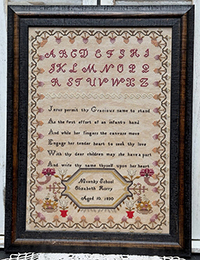 A B C D E F G H I
J K L M N O P Q
R S T U V W X Z
Jesus permit thy Gracious name to stand
As the first effort of an infants hand
And while her fingers the canvass move
Engage her tender heart to seek thy love
With thy dear children may she have a part
And write thy name thyself upon her heart
School
Elizabeth
Aged 10. 1800